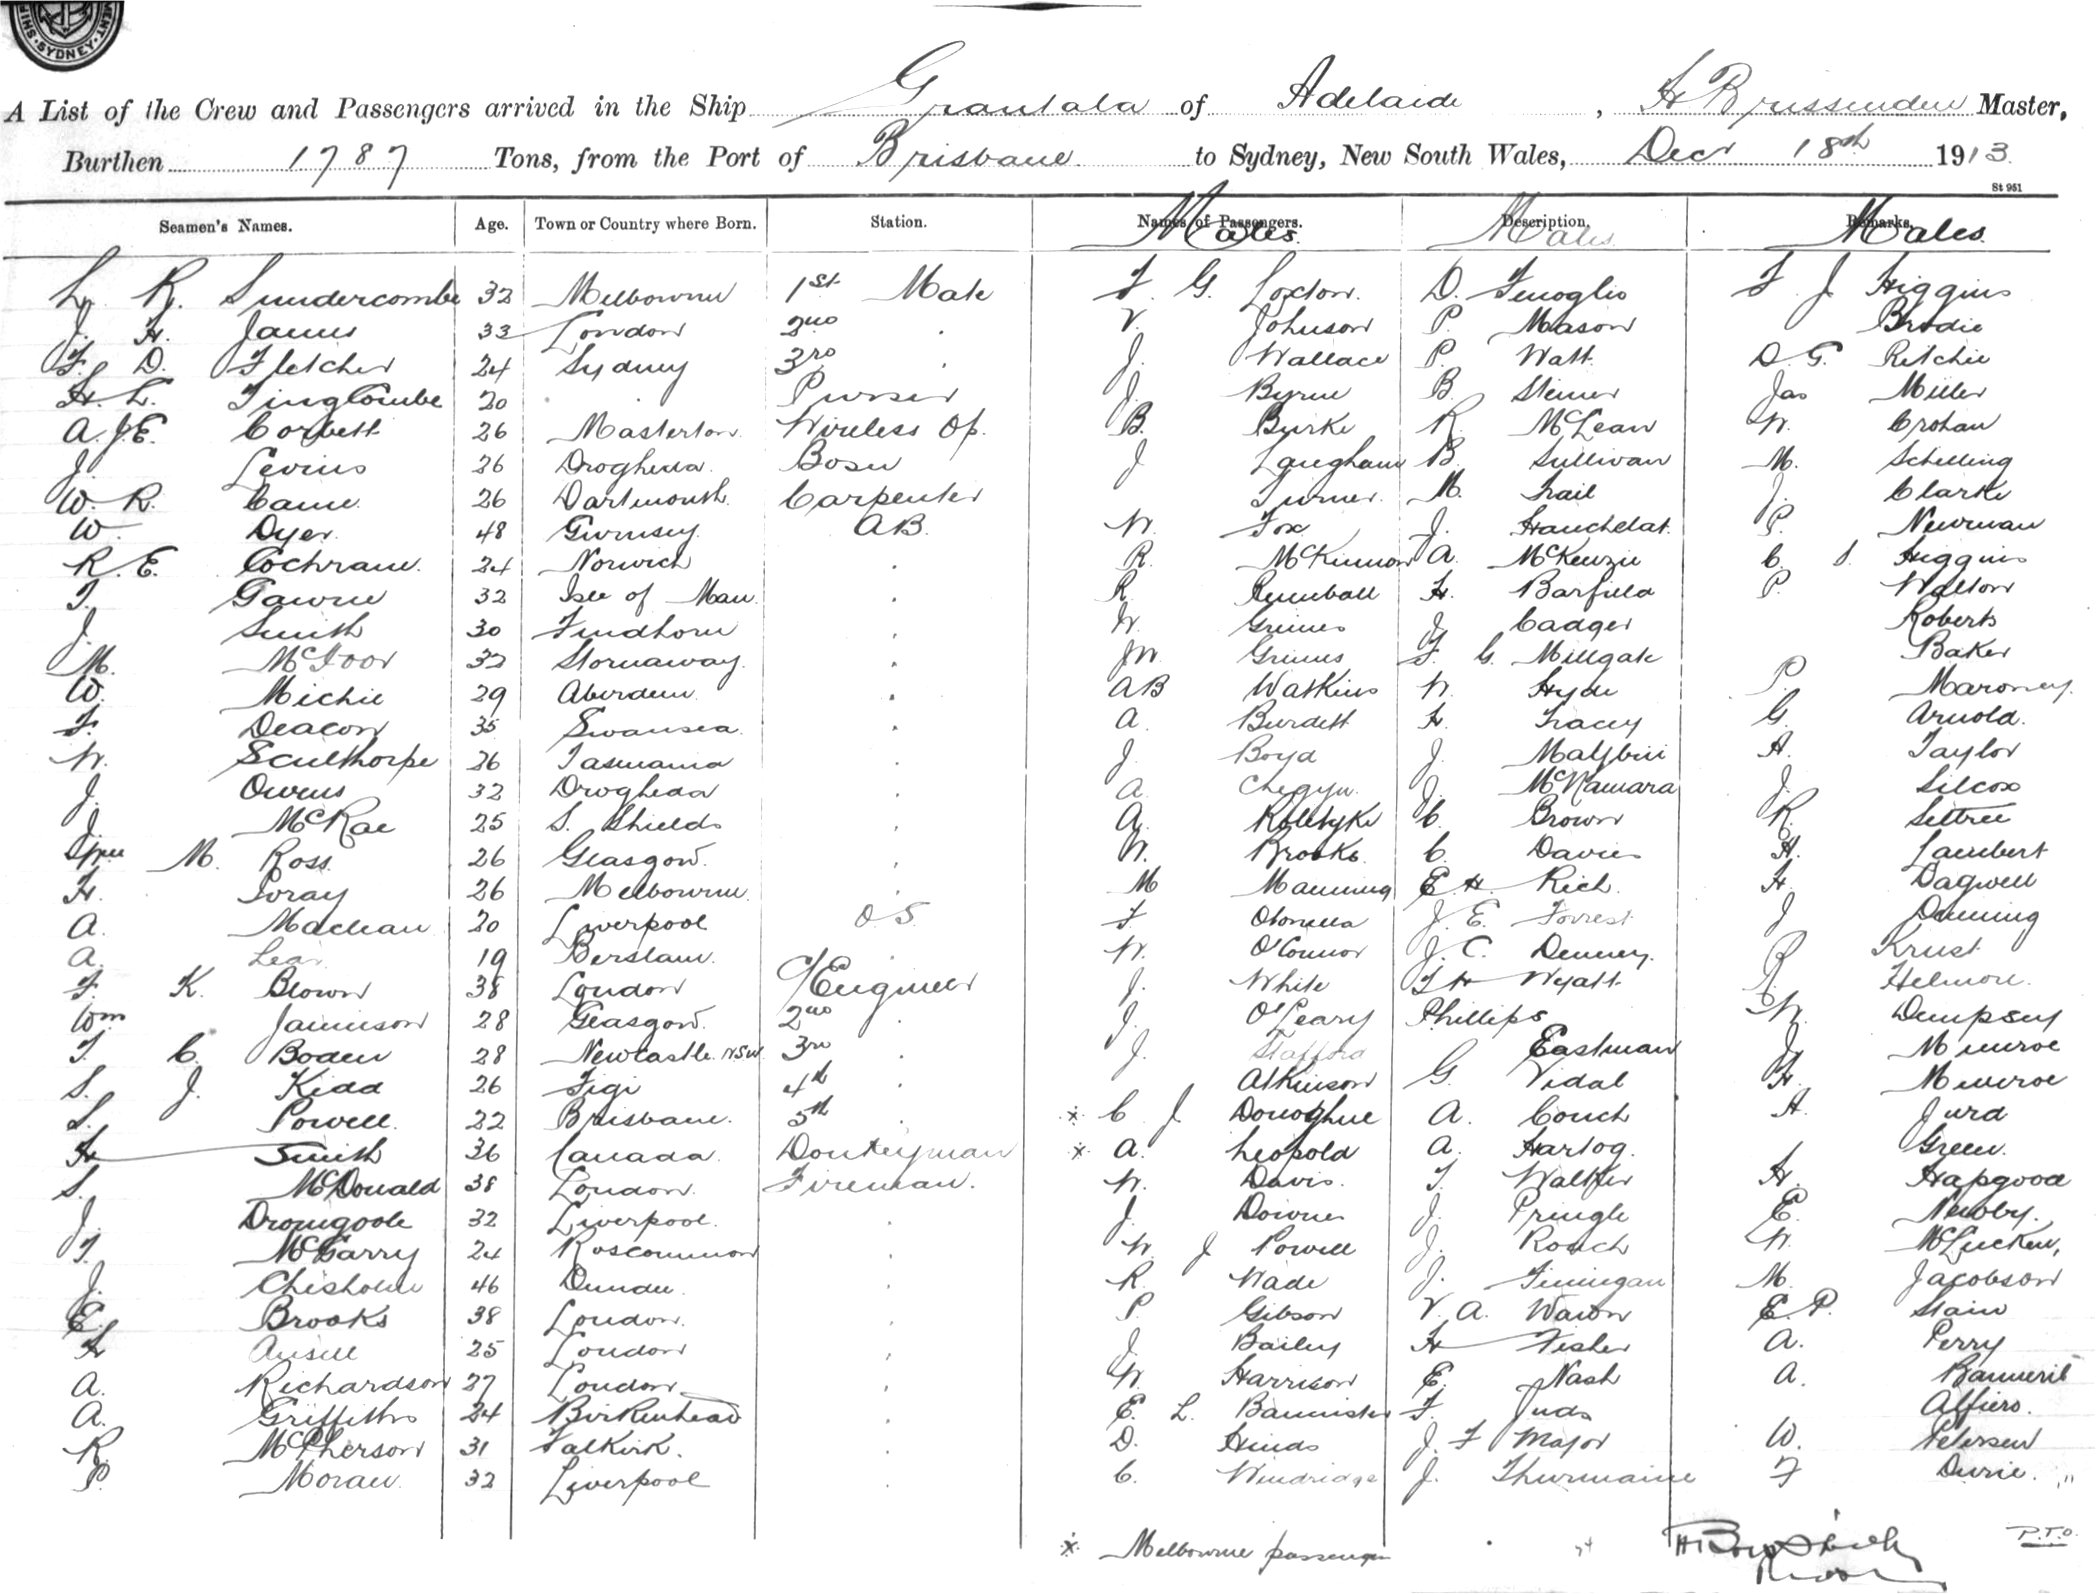 SYDNEY
A List of the Crew and Passengers arrived in the Ship Grantala of Adelaide, H Brissenden Master,
Burthen 1787 Tons, from the Port of Brisbane to Sydney, New South Wales, Decr 18th 1913
St 951
Seamen's Names. Age. Town or Country where Born. Station. Names of Passengers. Description. Remarks.
Males. Males Males.
L. R. Sundercombe 32 Melbourne 1st Mate F. G. Loxton. D. Finoglio F J Higgins
J. H. James 33 London 2nd . V. Johnson P. Mason Brodie
F. D. Fletcher 24 Sydney 3rd . J. Wallace P. Watt. D G. Ritchie
H. L. Tinglcombe 20 . Purser J. Byrne B. Steiner Jas Miller
A. J.E. Corbett 26 Masterton Wireless Op. B. Burke R. McLean W. Crohan
J. Levins 26 Drogheda. Bosn J Langham B. Sullivan M. Schelling
W. R. Came 26 Dartmouth. Carpenter Turner. M. Trail J. Clarke
W. Dyer. 48 Gurnsey. AB. W. Fox J. P. Newman
R. E. Cochrane. 24 Norwich . R. McKinnon A. McKenzie C. S. Higgins
T. Gawne 32 Isle of Man. . R. Rumball H. Barfield P. Walton
J. Smith 30 Findhorn . W. Grimes J. Cadger Roberts
M. McIvor 32 Stornaway. . JW. Grimes F. G. Millgate Baker
W. Michie 29 Aberdeen. . AB Watkins W. Hyde P. Maroney.
F. Deacon 35 Swansea . A. Burdett H. Tracey G. Arnold.
W. Sculthorpe 26 Tasmania . J. Boyd J. A. Taylor
J. Owens 32 Drogheda . A. J. McNamara J. Silcox
J. McRae 25 S. Shields . A. C. Brown R. Settree
Wm M. Ross. 26 Glasgow. . W. Brooks. C. Davies H. Lambert
H. 26 Melbourne. . M Manning E H. Rich. H. Dagwell
A. Maclean 20 Liverpool O S. F J. E. Forrest J Denning
A. Lear 19 Berslam. . W. O'Connor J. C. Denney. R Krust
F. K. Blown 38 London C/Engineer J. White T H Wyatt. R. Helmore.
Wm Jamieson 28 Glasgow. 2nd . J. O'Leary Phillips W. Dempsey
T. C. Boden 28 Newcastle. NSW 3rd . J. Stafford Eastman J. Munroe
S. J. Kidd 26 Figi 4th . Atkinson G. Vidal H. Munroe
S. Powell. 22 Brisbane. 5th . x C J Donoghue A. Couch A. Jurd
H Smith 36 Canada. Donkeyman x A. Leopold A. Hartog. Green.
S. McDonald 38 London. Fireman. W. Davis. T. Walker H. Hapgood
J. Dromgoole 32 Liverpool. . J. Downes J. Pringle E. Newby.
T. McGarry 24 Roscommon . W J Powell J. Roach W. McLucken,
J. Chisholm 46 Dundee. . R. Wade J. Finnigan M. Jacobson
E. Brooks 38 London. . P. Gibson V. A. Wawn E. P. Stain
H Ansell 25 London . J. Bailey H Fisher A. Perry
A. Richardson 27 London . W. Harrison E. Nash A.
A. Griffiths 24 Birkenhead . E. L. Bannister F. Judd Alfiero.
R. McPherson 31 Falkirk. . D. Hinds J. F Major W. Petersen
P. Moran. 32 Liverpool . C. Windridge J. Thurmaine F Durie.
x Melbourne passenger
P.T.O.